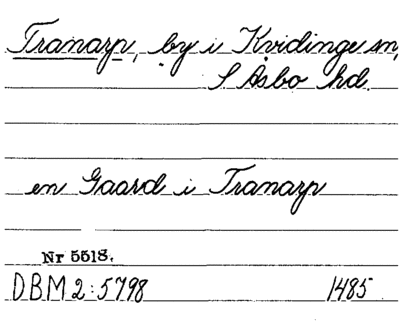 Tranarp, by i Kvidinge sn,
S Åsbo hd.
en Gaard i Tranarp
Nr 5518.
DBM 2:5798 1485